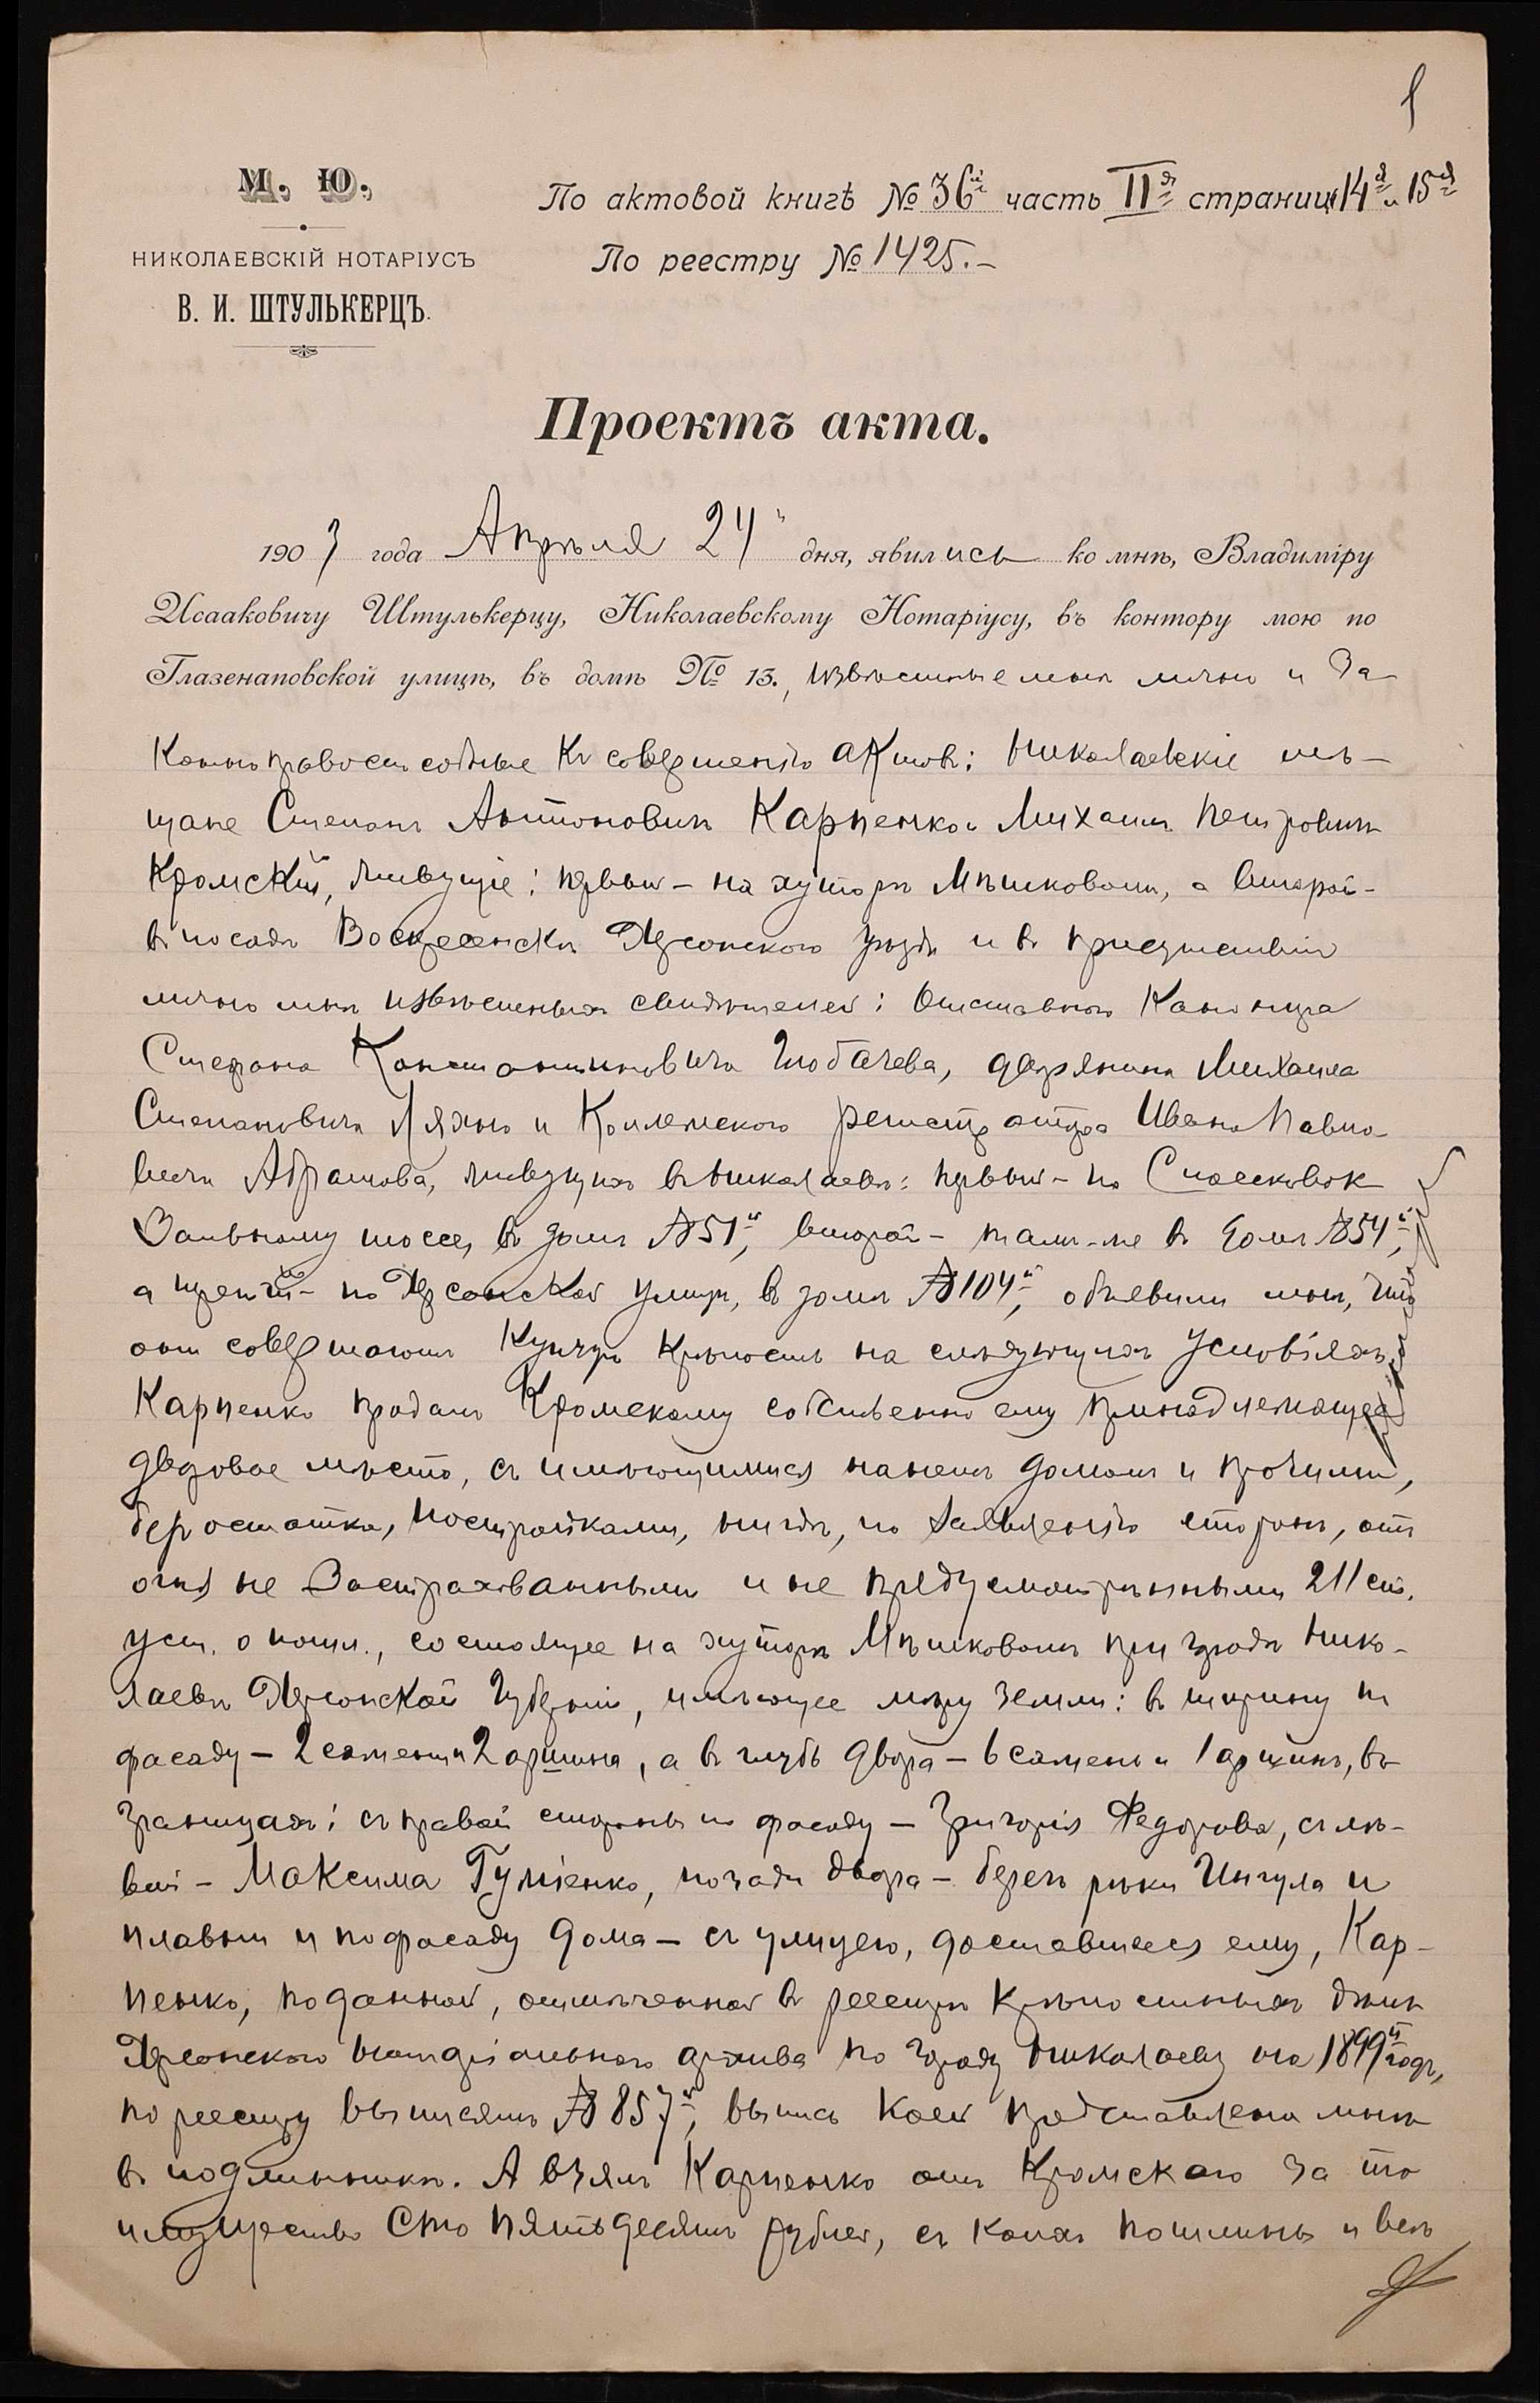 1
М. Ю.
НИКОЛАЕВСКІЙ НОТАРІУСЪ
В. И. ШТУЛЬКЕРЦЪ.
По актовой книгѣ № 36й часть IIя страниц 14я и 15я
По реестру № 1425.-
Проектъ акта.
1903 года Апрѣля 24 дня, явились ко мнѣ, Владиміру
Исааковичу Штулькерцу, Николаевскому Нотаріусу, въ контору мою по
Глазенаповской улицѣ, въ домѣ № 13., извѣстные мнѣ лично и за
конно правоспособные къ совершенію актовъ: Николаевскіе мѣ-
щане Степанъ Антоновичъ Карпенко и Михаилъ Петровичъ
Кромскій, живущіе: первый - на хуторѣ Мѣшковомъ, а второй -
въ посадѣ Воскресенскѣ Херсонского уѣзда и въ присутствіи
лично мнѣ извѣстныхъ свидѣтелей: Отставного
Степана Константиновича дворянина Михаила
Степановича Ляхно и Коллежского регистратора Ивана Павло-
вича Абрамова, живущихъ въ Николаевѣ: первый - по Спасскому
шоссе, въ домѣ № 51й, второй - тамъ-же въ домѣ № 54й,
а третій - по Херсонской улицѣ, въ домѣ № 104й, объявили мнѣ, что
они совершаютъ Купчую Крѣпость на слѣдующихъ условіяхъ:
Карпенко продалъ Кромскому собственно ему принадлежащее
дворовое мѣсто, съ имѣющимися на немъ домомъ и прочими,
безъ остатка, постройками, нигдѣ, по заявленію сторонъ, отъ
огня не застрахованными и не предусмотрѣнными 211 ст.
уст. о пошл., состоящее на хуторѣ Мѣшковомъ при городѣ Нико-
лаевѣ Херсонской Губерніи, имѣющее мѣру земли: въ ширину по
фасаду - 2 сажени и 2 аршина, а въ глубь двора - 6 сажень и 1 аршинъ, въ
границахъ: съ правой стороны по фасаду - Григорія Федорова, съ лѣ-
вой - Максима Гуліенко, позади двора - берегъ рѣки Ингула и
плавни и по фасаду дома - съ улицею, доставшееся ему, Кар-
пенко, по данной, отмѣченной въ реестрѣ крѣпостныхъ дѣлъ
Херсонского Нотаріального архива по городу Николаеву на 1899й годъ,
по реестру выписямъ № 857й, выпись коей представлена мнѣ
въ подлинникѣ. А взялъ Карпенко отъ Кромскаго за то
имущество Сто пятьдесятъ рублей, съ коихъ пошлины и всѣ